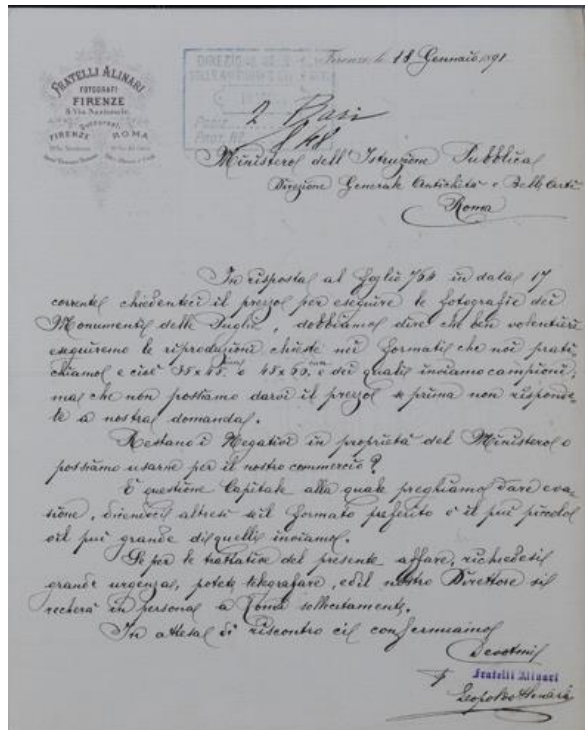 FRATELLI ALINARI
FOTOGRAFI
FIRENZE
8 Via Nazionale
Succursali
FIRENZE ROMA
Firenze, le 18 Gennaio 1891
2 Bari
Ministero dell'Istruzione Pubblica
Direzione Generale Antichità e Belle Arti
Roma
In risposta al foglio 764 in data 17
corrente chiedenteci il prezzo per eseguire le fotografie dei
Monumenti delle Puglie, dobbiamo dire che ben volentieri
eseguiremo le riproduzioni chieste nei formati che noi prati
chiamo e cioè e dei quali inviamo campioni,
ma che non possiamo darvi il prezzo se prima non risponde
te a nostra domanda.
Restano i Negativi in proprietà del Ministero o
possiamo usarne per il nostro commercio?
È questione Capitale alla quale preghiamo dare eva
sione, dicendoci altresì se il formato preferito è il più piccolo
o il più grande di quelli inviamo.
Se per le trattative del presente affare, richiedesi
grande urgenza, potete telegrafare, ed il nostro Direttore si
recherà in persona a Roma sollecitamente.
In attesa di riscontro ci confermiamo
Devotmi
Fratelli Alinari
Leopoldo Alinari